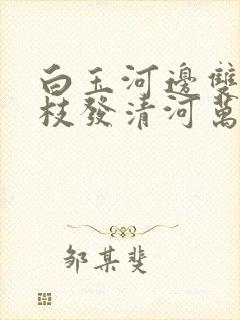 白玉河邊雙
枝發清河萬
邹某斐